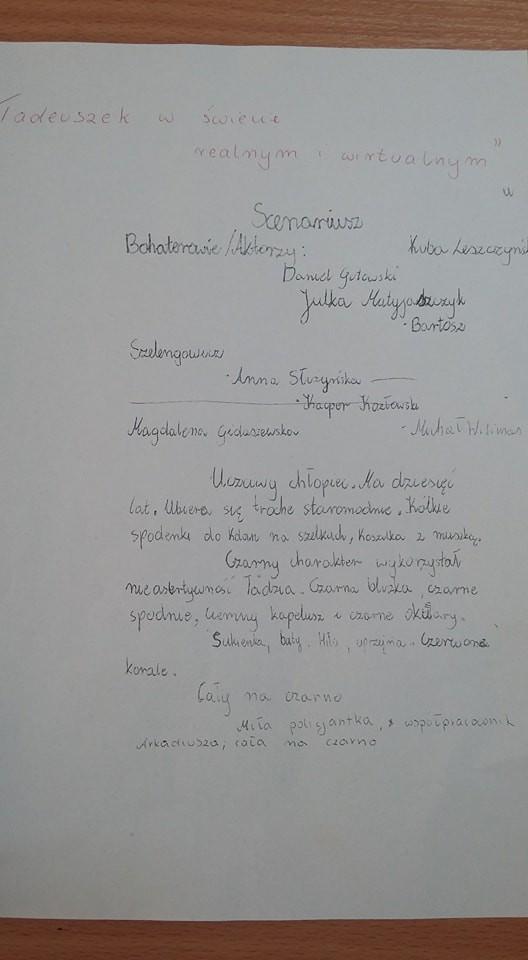 Tadeuszek w świecie
realnym i wirtualnym"
"
Scenariusz
Bohaterowie/Aktorzy: Kuba Leszczyńsk
Daniel Gutowski
Julka Matyjaszczyk
· Bartosz
Szelengowicz
· Anna Służyńska
· Kacper Kozłowski
Magdalena Goduszewska - Michał
Uczuwy chłopiec. Ma dziesięć
lat. Ubiera się troche staromodnie. Kólkie
spodenki do kolan na szelkach, koszulka z muszką.
Czarny charakter wykorzystał
nieasertywność Tadzia. Czarna bluzka, czarne
spodnie, ciemny kapelusz i czarne okulary.
Sukienka, buty. Miła, uprzejma. Czerwone
korale.
Cały na czarno
Miła policjantka, współpracownik
Arkadiusza, cała na czarno